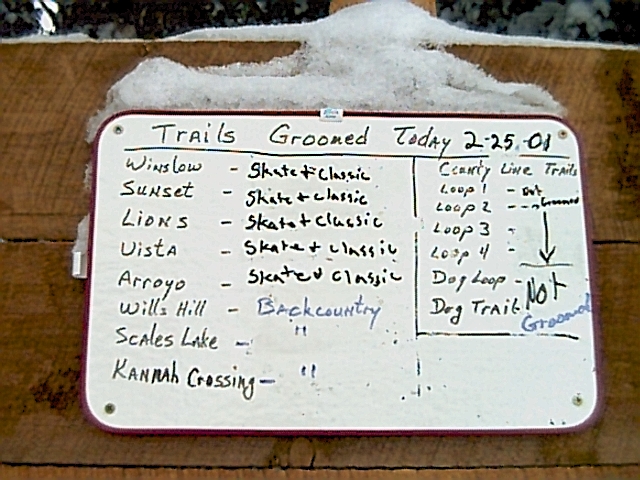 Trails Groomed Today 2-25-01
Winslow - Skate + Classic
Sunset - Skate + Classic
Lions - Skate + Classic
Vista - Skate + Classic
Arroyo - Skate + Classic
Wills Hill - Backcountry
Scales Lake - "
Kannah Crossing - "
County Line Trails
Loop 1 - Not
Loop 2 - - - Groomed
Loop 3 -
Loop 4 -
Dog Loop -
Dog Trail - Not
Groomed